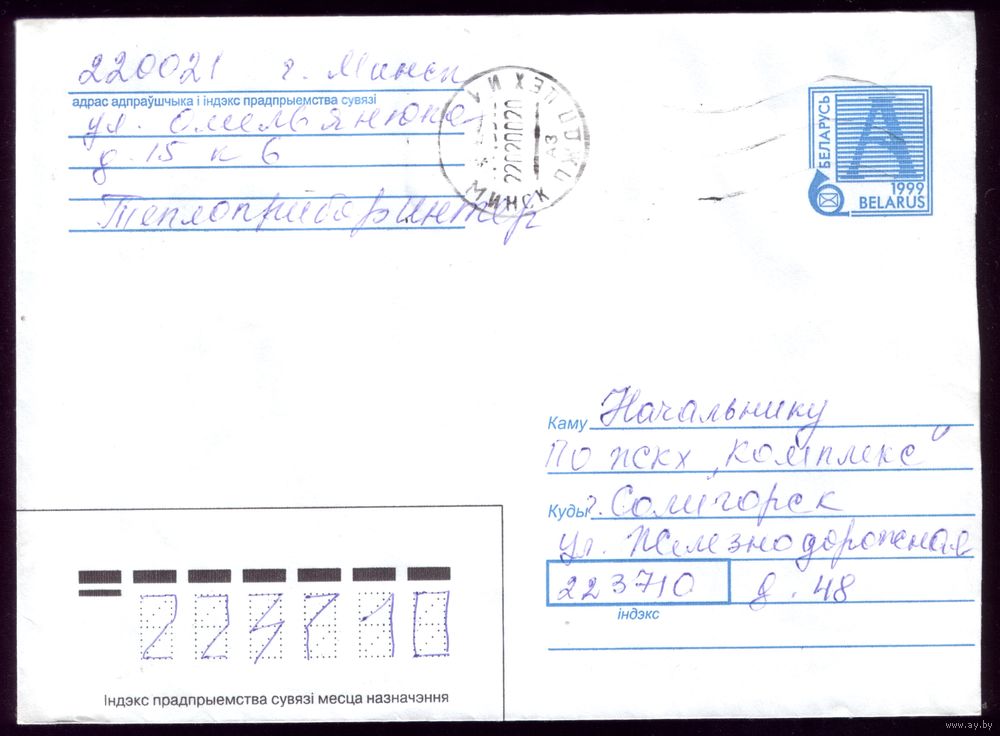 220021 г. Минск
адрас адпраўшчыка і індэкс прадпрыемства сувязі
ул. Омельянюка
д. 15 к 6
Теплоприборинтер
МИНСК
22020002
БЕЛАРУСЬ
A
1999
BELARUS
Каму Начальнику
ПО ЖКХ „Комплекс"
Куды г. Солигорск
ул. Железнодорожная
223710 д. 48
індэкс
223710
Індэкс прадпрыемства сувязі месца назначэння
www.ay.by